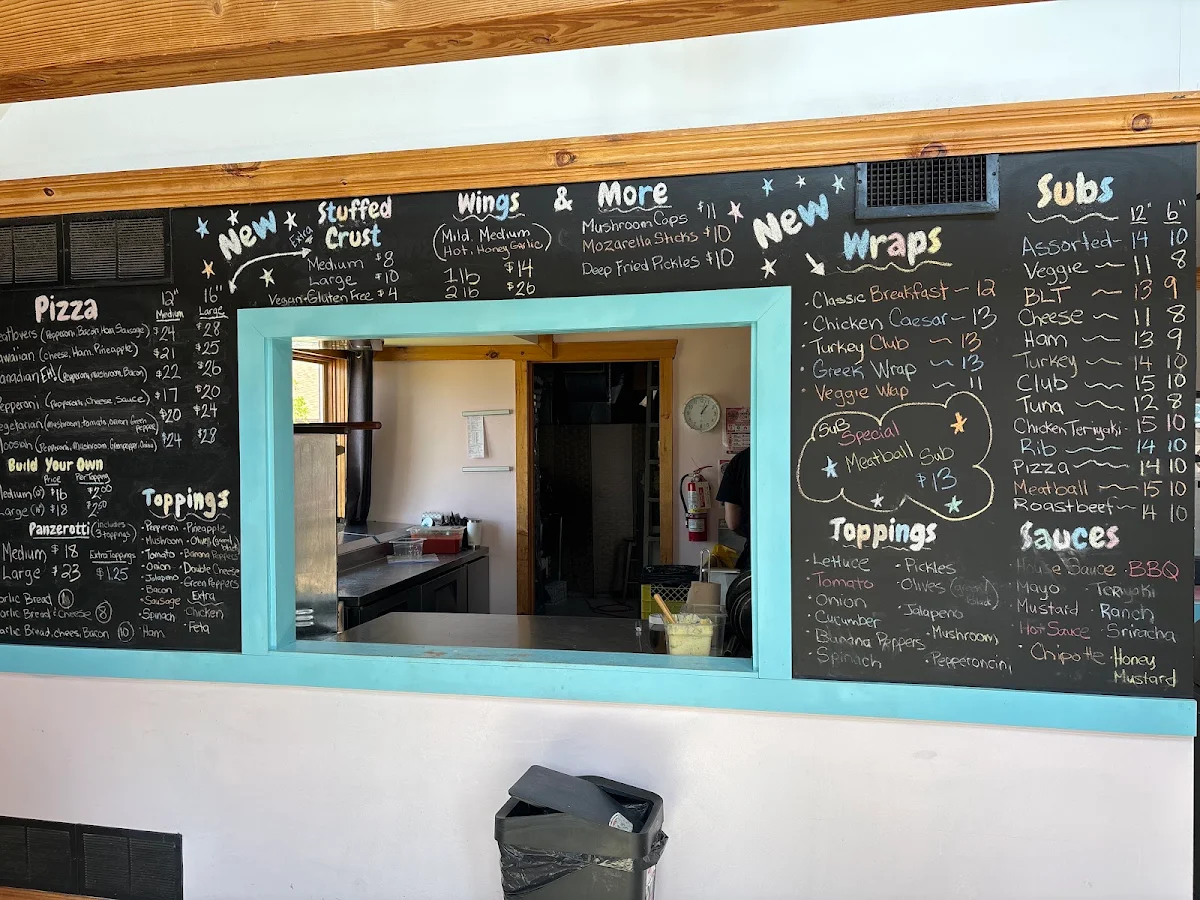 Pizza
12" 16"
Medium Large
eatlovers (Pepperoni, Bacon, Ham, Sausage) $24 $28
awaiian (cheese, Ham, Pineapple) $21 $25
anadian Eh! (Pepperoni, mushroom, Bacon) $22 $26
epperoni (Pepperoni, Cheese, Sauce) $17 $20
egetarian (mushroom, tomato, onion, Green Pepper) $20 $24
oosiah (Pepperoni, Mushroom, Greenpepper, Onion) $24 $28
Build Your Own
Price Per Topping
Medium $16 $2.00
Large $18
Panzerotti (includes 3 toppings)
Medium $18 Extra Toppings
Large $23 $1.25
arlic Bread
arlic Bread & Cheese (8)
arlic Bread, chees, Bacon (10)
Toppings
• Pepperoni • Pineapple
• Mushroom • Olives (green/black)
• Tomato • Banana Peppers
• Onion • Double Cheese
• Jalapeno • Green Peppers
• Bacon Extra
• Sausage • Chicken
• Spinach • Feta
• Ham
New
Stuffed
Crust
Extra
Medium $8
Large $10
Vegan + Gluten Free $4
Wings & More
(Mild, Medium
Hot, Honey Garlic)
1lb $14
2lb $26
Mushroom Caps $11
Mozarella Sticks $10
Deep Fried Pickles $10
New
Wraps
• Classic Breakfast ~ 12
• Chicken Caesar ~ 13
• Turkey Club ~ 13
• Greek Wrap ~ 13
Veggie Wap ~ 11
Sub Special
Meatball Sub
$13
Subs
12" 6"
Assorted - 14 10
Veggie ~ 11 8
BLT ~ 13 9
Cheese ~ 11 8
Ham ~ 13 9
Turkey ~ 14 10
Club ~ 15 10
Tuna ~ 12 8
Chicken Teriyaki - 15 10
Rib ~ 14 10
Pizza ~ 14 10
Meatball ~ 15 10
Roastbeef ~ 14 10
Toppings
• Lettuce • Pickles
• Tomato • Olives (green/black)
• Onion • Jalapeno
• Cucumber • Mushroom
• Banana Peppers • Pepperoncini
• Spinach
Sauces
House Sauce • BBQ
Mayo • Teriyaki
• Mustard • Ranch
• Hot Sauce • Sriracha
• Chipotle • Honey
Mustard